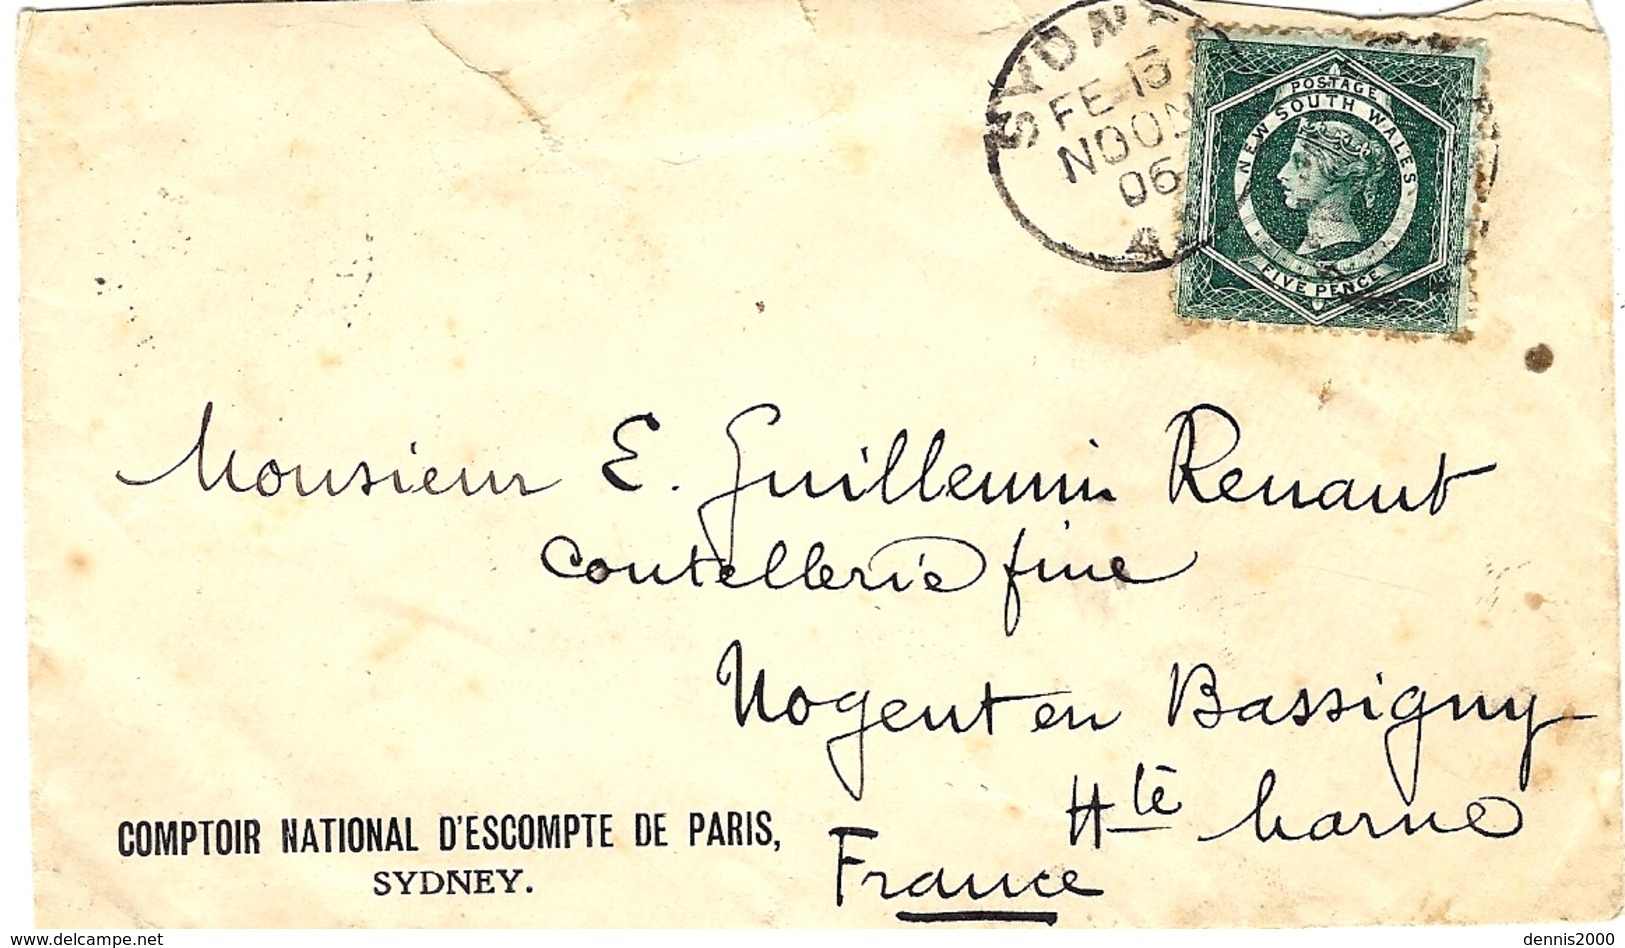 SYDNEY
FE 13
NOON
06
POSTAGE
NEW SOUTH WALES
FIVE PENCE
Monsieur E. Guillemin Renaut
Coutellerie fine
Nogent en Bassigny
Hte Marne
France
COMPTOIR NATIONAL D'ESCOMPTE DE PARIS,
SYDNEY.
delcampe.net
dennis2000